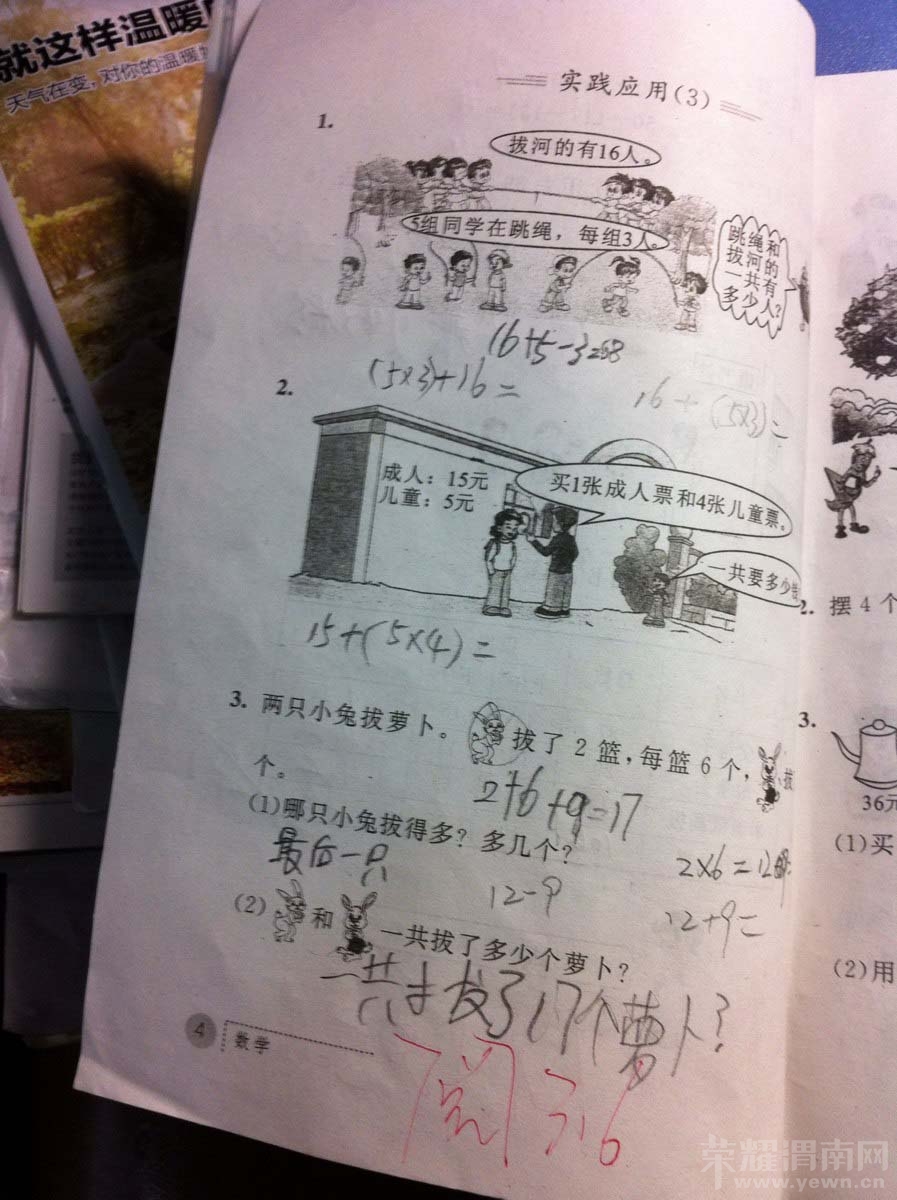 就这样温暖
天气在变，对你的温暖
实践应用(3)
1.
拔河的有16人。
5组同学在跳绳，每组3人。
跳绳和
拔河的
一共有
多少人？
16+5-3=
(5×3)+16=
16+(5×3)=
2.
成人：15元
儿童：5元
买1张成人票和4张儿童票。
一共要多少
15+(5×4)=
3. 两只小兔拔萝卜。 拔了 2 篮，每篮 6 个， 拔
个。
2+6+9=17
(1)哪只小兔拔得多？多几个？
最后一只
2×6=12
12-9
12+9=
(2) 和 一共拔了多少个萝卜？
一共 拔了17个萝卜？
4
数学
阅 3.16
2. 摆 4 个
3.
36元
(1)买
(2)用
荣耀渭南网
www.yewn.cn